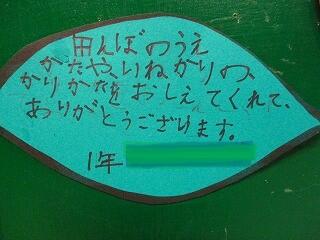 田んぼのうえ
かたや、いねかりの、
かりかたをおしえてくれて、
ありがとうございます。
1年